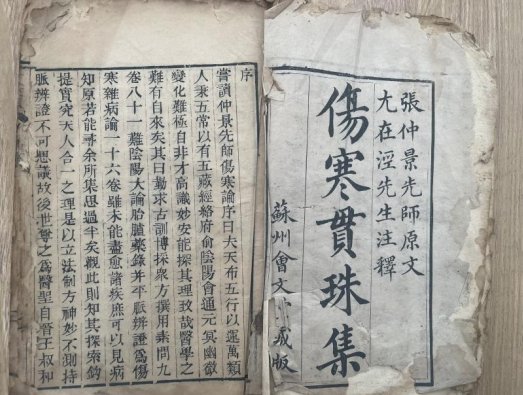 張仲景先師原文
尤在涇先生注釋
傷寒貫珠集
蘇州會文堂藏版
序
嘗讀仲景先師傷寒論序曰夫天布五行以運萬類
人稟五常以有五藏經絡府俞陰陽會通元冥幽微
變化難極自非才高識妙安能探其理致哉醫學之
難有自來矣其曰勤求古訓博採衆方撰用素問九
卷八十一難陰陽大論胎臚藥錄并平脈辨證爲傷
寒雜病論一十六卷雖未能盡愈諸疾庶可以見病
知原若能尋余所集思過半矣觀此則知其探索鈎
提實究天人合一之理是以立法制方神妙不測持
脈辨證不可思議故後世尊之爲醫聖自晉王叔和